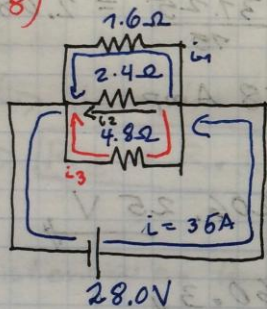 8)
1.6Ω
i1
2.4Ω
i2
4.8Ω
i3
i=35A
28.0V